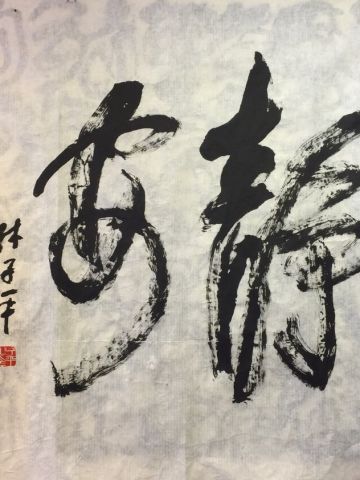 静安
林子平